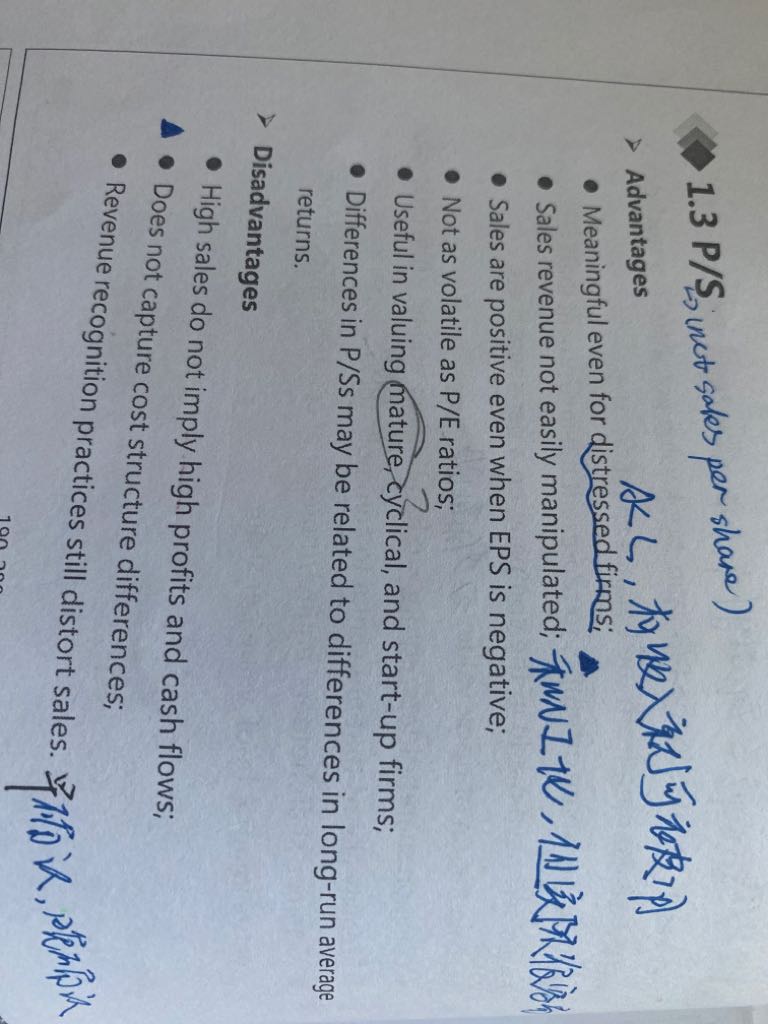 1.3 P/S
↳ net sales per share)
➢ Advantages
● Meaningful even for distressed firms;
● Sales revenue not easily manipulated;
● Sales are positive even when EPS is negative;
● Not as volatile as P/E ratios;
● Useful in valuing mature, cyclical, and start-up firms;
● Differences in P/Ss may be related to differences in long-run average
returns.
➢ Disadvantages
● High sales do not imply high profits and cash flows;
● Does not capture cost structure differences;
● Revenue recognition practices still distort sales.